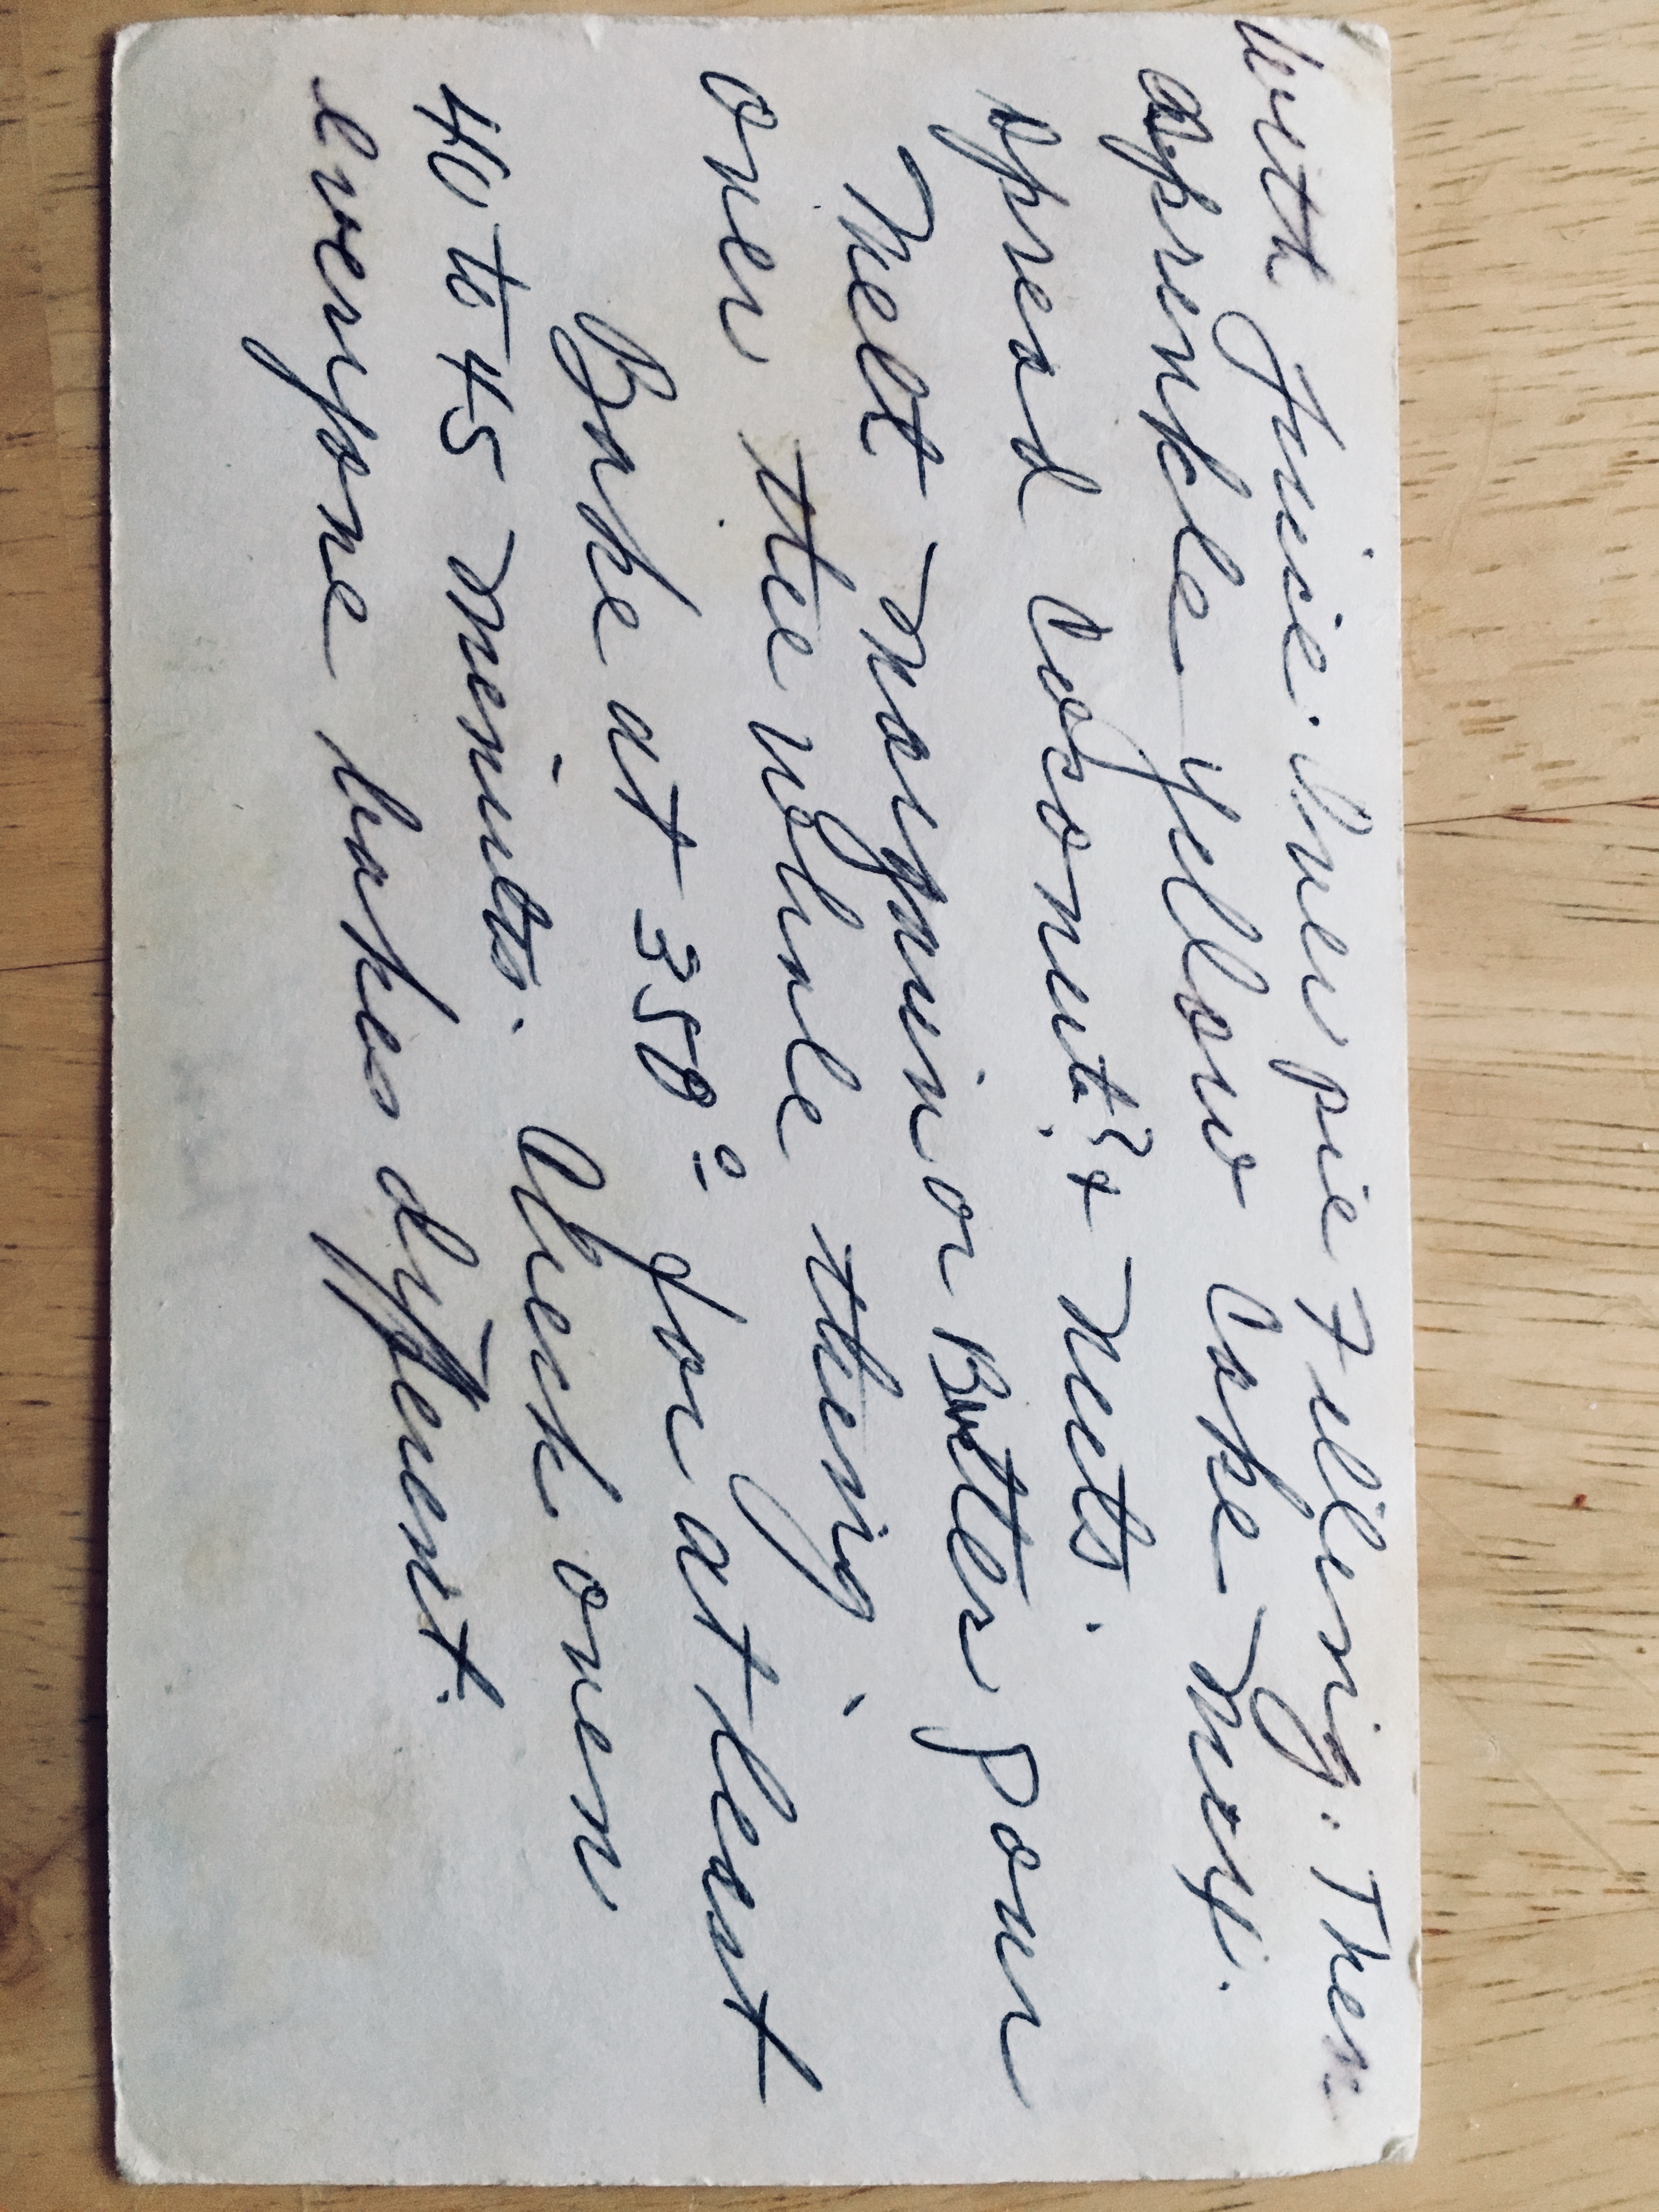 with Juice. Over pie Filling. Then
sprinkle yellow Cake Mix.
spread Coconut? & Nuts.
Melt Margarin or Butter Pour
over the whole thing.
Bake at 350° for at least
40 to 45 Minutes. Check oven
everyone bakes different.